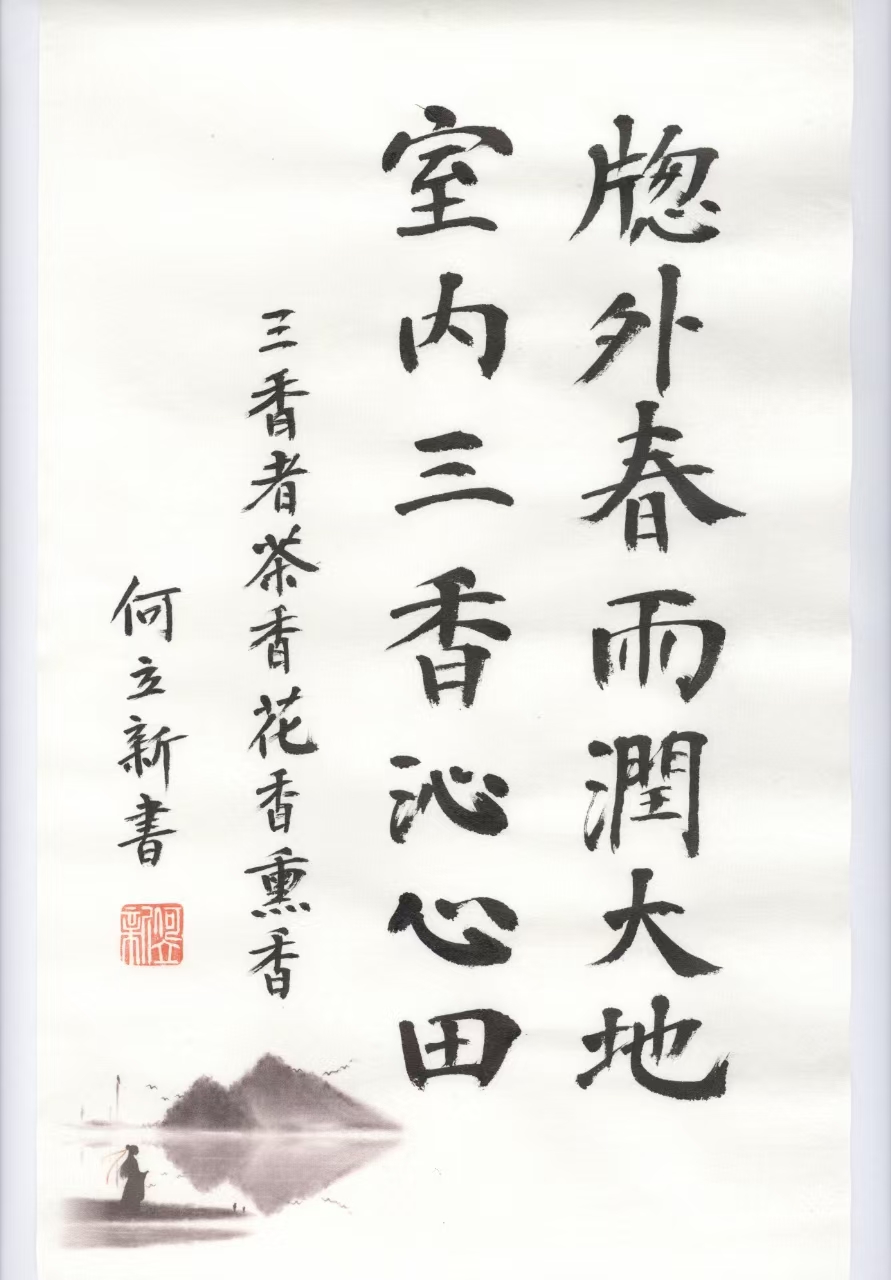 牕外春雨潤大地
室内三香沁心田
三香者茶香花香熏香
何立新書
何立新